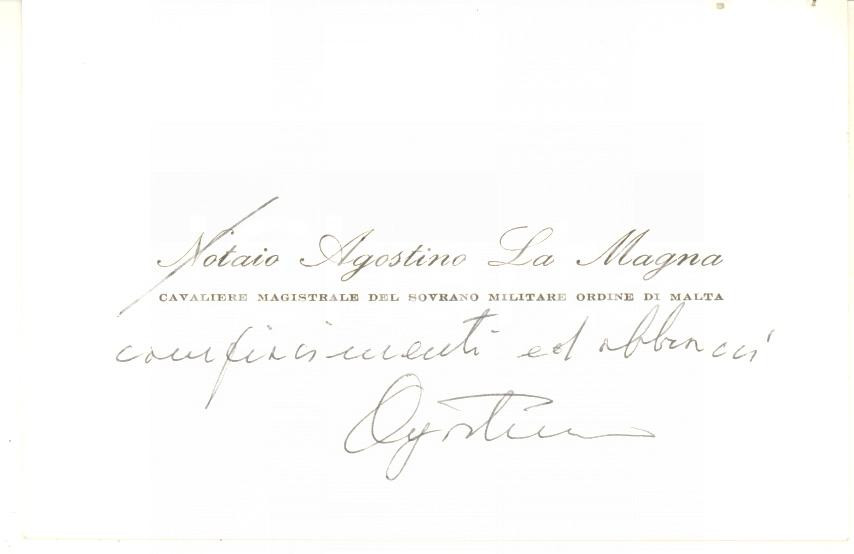 Notaio Agostino La Magna
CAVALIERE MAGISTRALE DEL SOVRANO MILITARE ORDINE DI MALTA
compiacimenti ed abbracci
Agostino